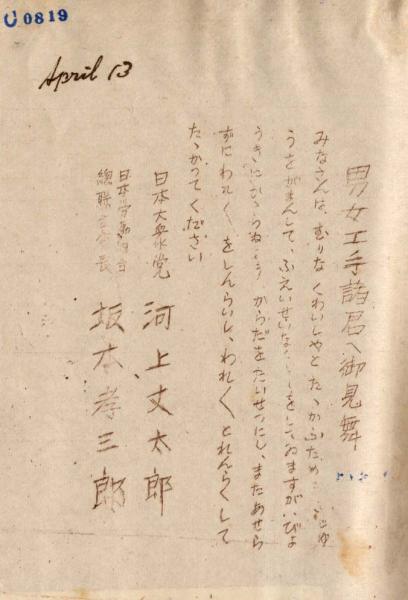 U0819
April 13
男女工手諸君へ御見舞
みなさんは、むりなくわいしやとたゝかふために
うをがまんして、ふえいせいな をしてゐますがいびよ
うきにかゝらぬ からだをたいせつにし、またあせら
ずにわれ〱をしんらいし、われ〱とれんらくして
たゝかつてください
日本大衆党 河上丈太郎
日本労働組合
總聯 会長 坂本孝三郎